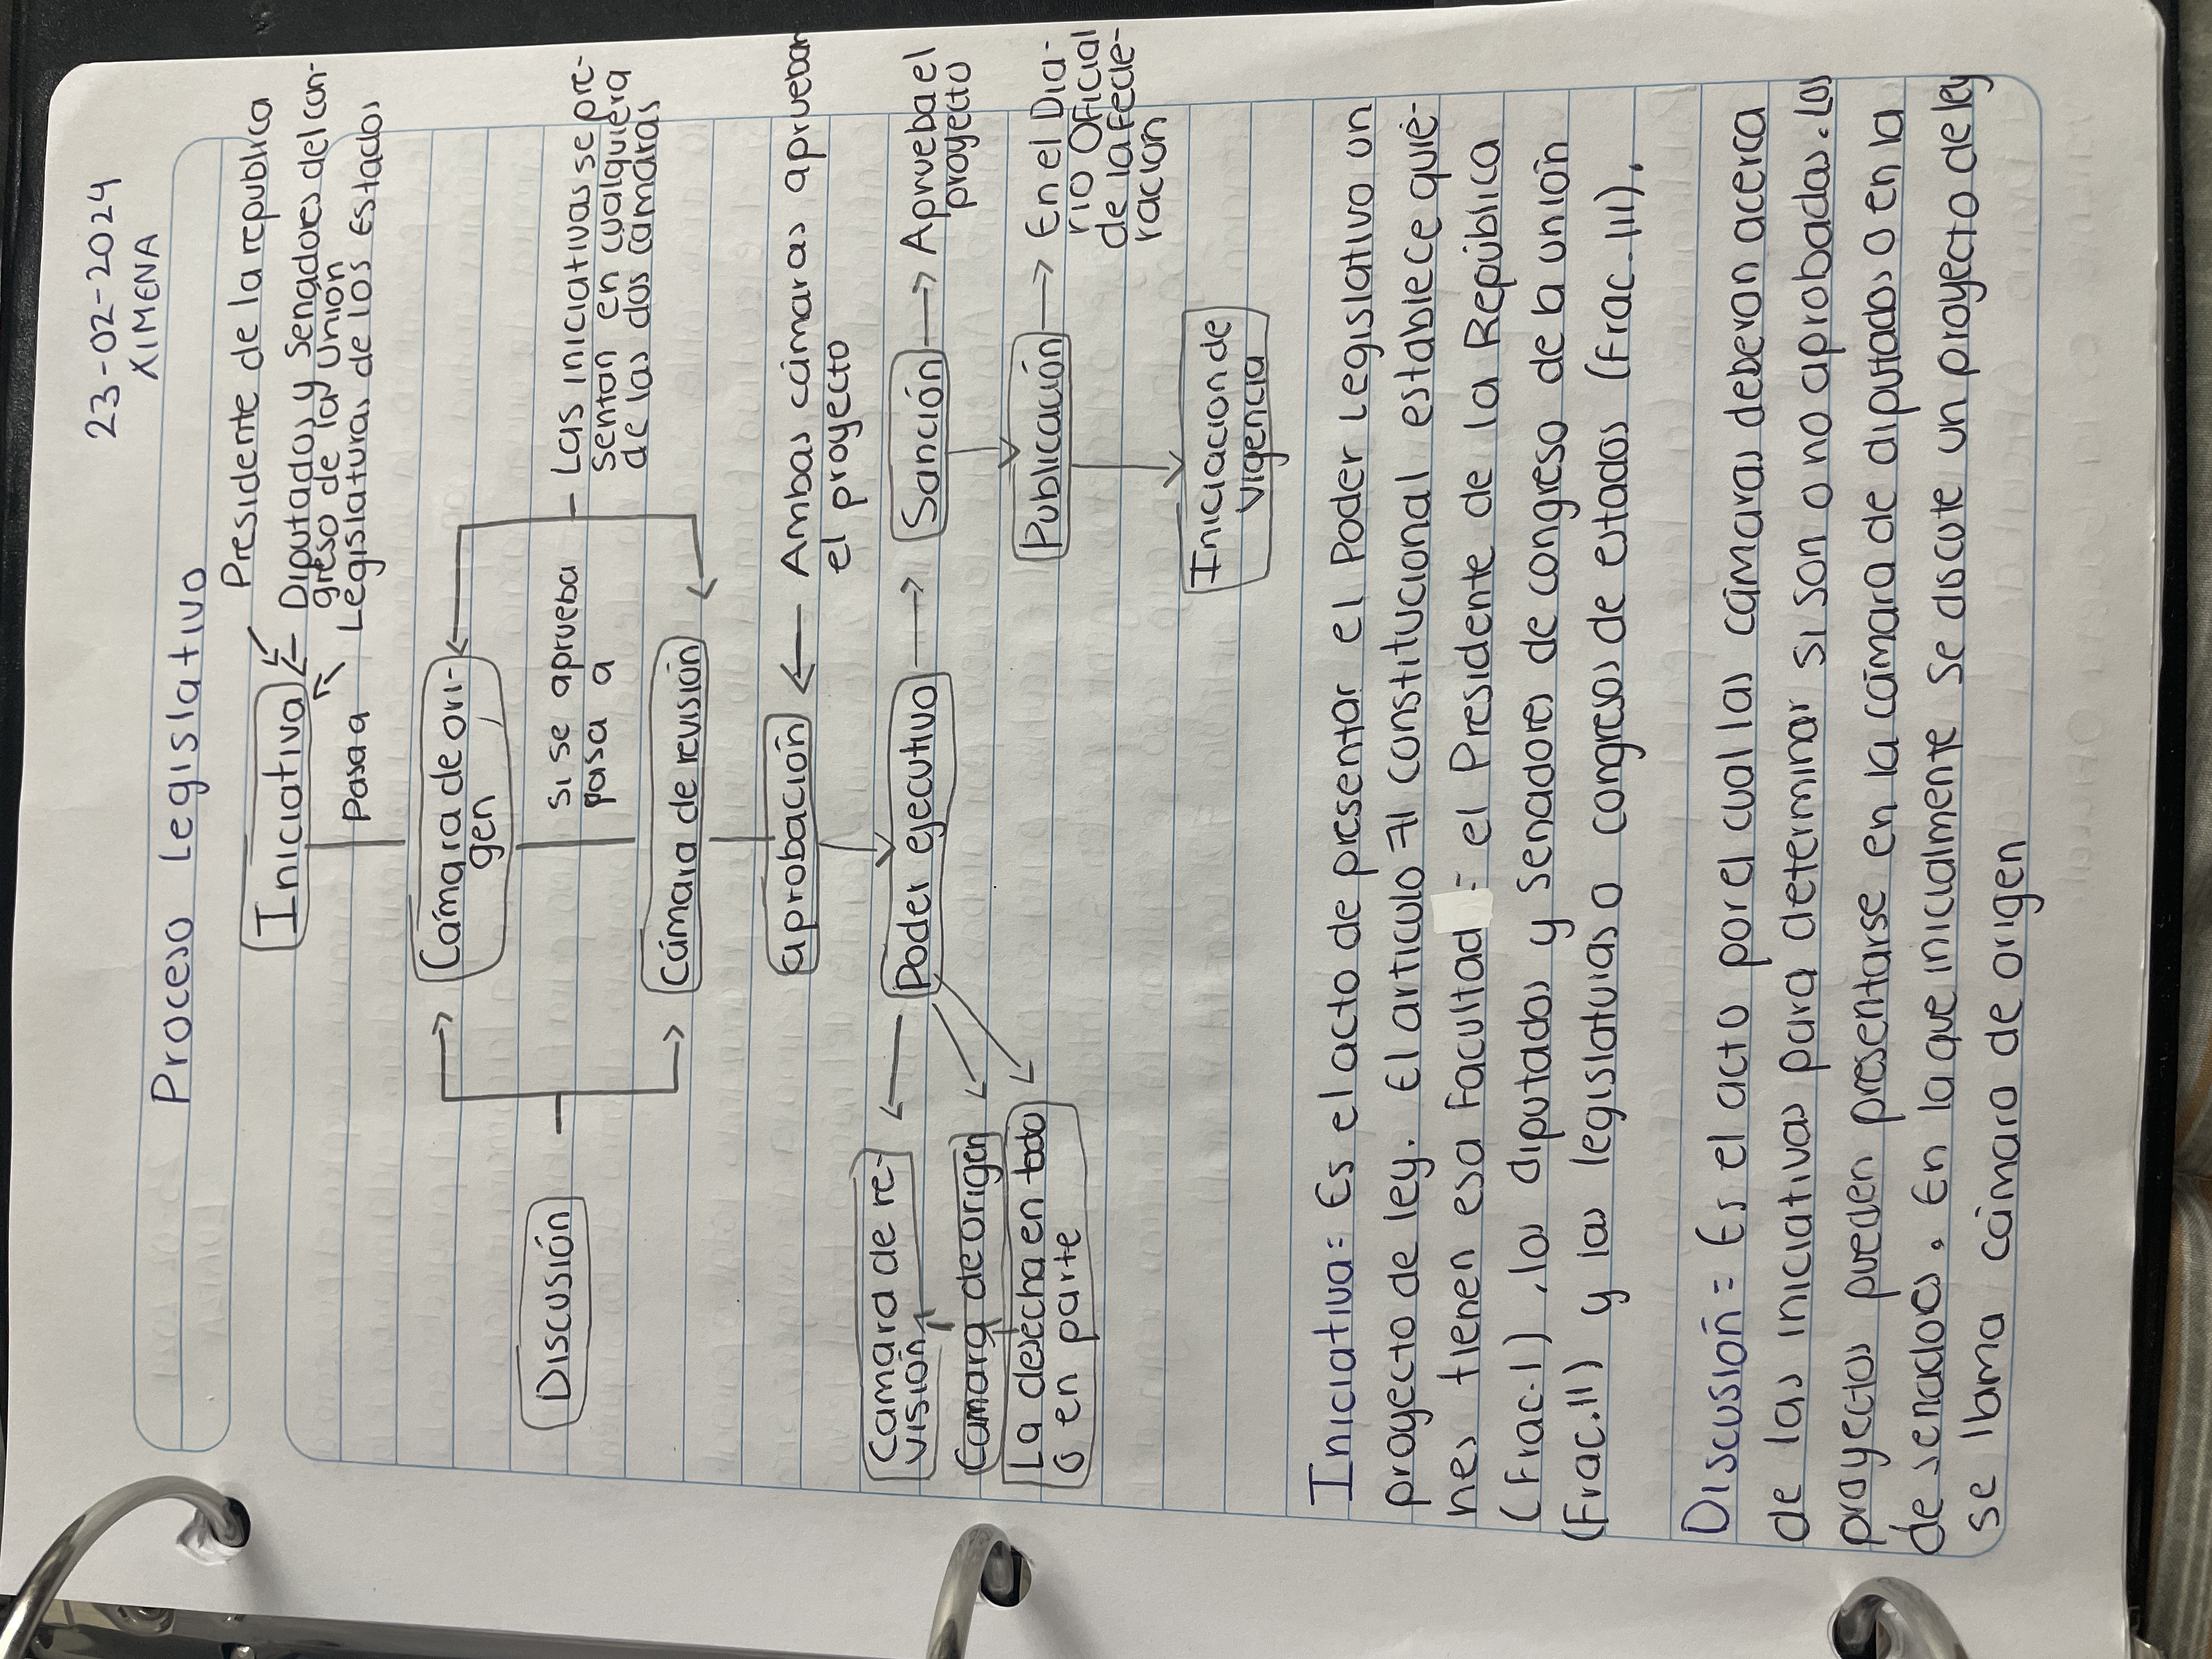 23-02-2024
XIMENA
Proceso Legislativo
Presidente de la republica
Iniciativa
Diputados y Senadores del con-
greso de la Unión
Legislaturas de los estados
Pasa a
Cámara de ori-
gen
Las iniciativas se pre-
sentan en cualquiera
de las dos cámaras
si se aprueba
pasa a
Discusión
Cámara de revisión
aprobación
Ambas cámaras aprueban
el proyecto
Poder ejecutivo
Sanción
Aprueba el
proyecto
Camara de re-
visión
Camara de origen
La desecha en todo
o en parte
Publicación
En el Dia-
rio Oficial
de la Fede-
racion
Iniciacion de
vigencia
Iniciativa= Es el acto de presentar el Poder Legislativo un
proyecto de ley. El articulo 71 constitucional establece quié-
nes tienen esa Facultad: el Presidente de la República
(Frac.I), los diputados y senadores de congreso de la unión
(Frac.II) y las legislaturas o congresos de estados (Frac.III).
Discusión= Es el acto por el cual las cámaras deberan acerca
de las iniciativas para determinar si son o no aprobadas. Los
proyectos pueden presentarse en la cámara de diputados o en la
de senadores. En la que inicialmente se discute un proyecto de ley
se lama cámara de origen